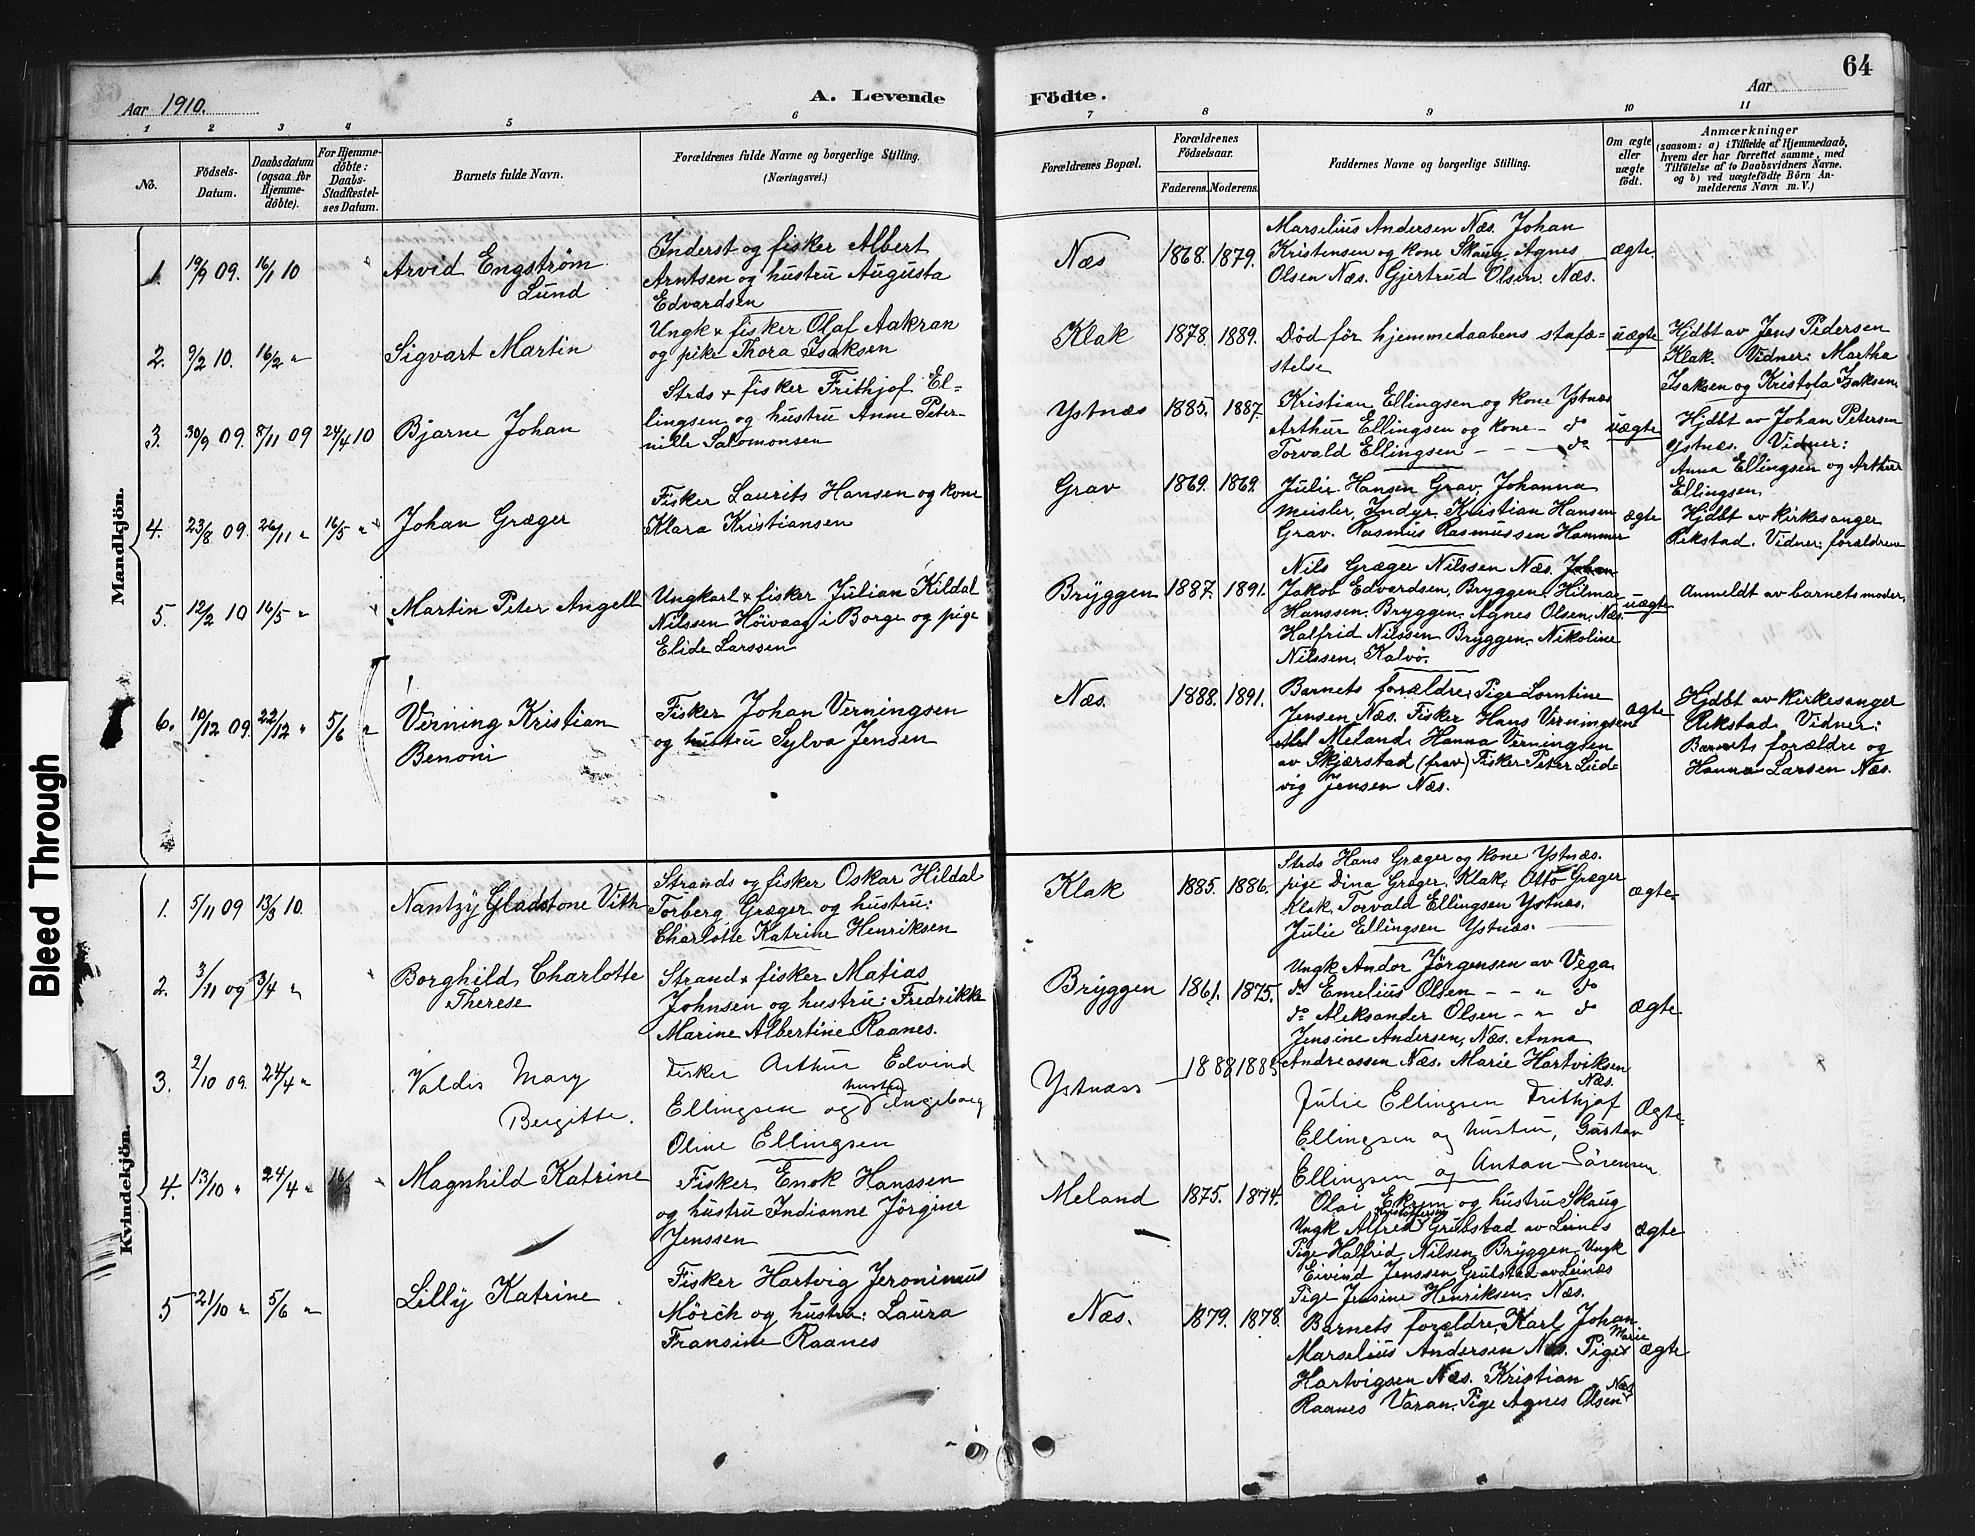 64
Aar 1910.
A. Levende
Födte.
Aar
1
2
3
4
5
6
7
8
9
10
11
No.
Födsels-
Datum.
Daabsdatum
(ogsaa for
Hjemme-
döbte).
For Hjemme-
döbte:
Daabs-
Stadfæstel-
ses Datum.
Barnets fulde Navn.
Forældrenes fulde Navne og borgerlige Stilling.
(Næringsvei.)
Forældrenes Bopæl.
Forældrenes
Födselsaar.
Faderens.
Moderens.
Faddernes Navne og borgerlige Stilling.
Om ægte
eller
uægte
født.
Anmærkninger
(saasom: a) i Tilfælde af Hjemmedaab,
hvem der har forrettet samme, med
Tilföielse af to Daabsvidners Navne.
og b) ved uægtefödte Börn An-
melderens Navn m. V.)
Mandkjön.
1.
19/9 09.
16/1 10
Arvid Engstrøm
Lund
Inderst og fisker Albert
Arntsen og hustru Augusta
Edvardsen
Næs
1868.
1879.
Marselius Andersen Næs. Johan
Kristensen og kone Skaug. Agnes
Olsen Næs. Gjertrud Olsen. Næs.
ægte.
2.
9/2 10.
16/2 "
Sigvart Martin
Ungk & fisker Olaf Aakran
og pike Thora Isaksen
Klak
1878.
1889.
Död för hjemmedaabens stafæ-
stelse
uægte
Hjdbt av Jens Pedersen
Klak. Vidner: Martha
Isaksen og Kristola Isaksen.
3.
30/9 09.
8/11 09
24/4 10
Bjarne Johan
Strds & fisker Frithjof El-
lingsen og hustru Anne Peter-
nille Salomonsen
Ystnæs
1885.
1887.
Kristian Ellingsen og kone Ystnæs
Arthur Ellingsen og kone - do
Torvald Ellingsen - - - do
uægte
Hjdbt av Johan Petersen
Ystnæs. Vidner:
Anna Ellingsen og Arthur
Ellingsen.
4.
23/8 09.
26/11 "
16/5 "
Johan Græger
Fisker Laurits Hansen og kone
Klara Kristiansen
Grav
1869.
1869.
Julie Hansen Grav, Johanna
Meisler, Indyr, Kristian Hansen
Grav. Rasmus Rasmussen Hammer
ægte
Hjdbt av kirkesanger
Rekstad. Vidner: forældrene
5.
12/2 10
16/5 "
Martin Peter Angell
Ungkarl & fisker Julian Kildal
Nilssen Höivaag i Borge og pige
Elide Larssen
Bryggen
1887.
1891.
Nils Græger Nilssen Næs. Johan
Jakob Edvardsen, Bryggen. Hilmar
Hanssen. Bryggen. Agnes Olsen. Næs.
Halfrid Nilssen Bryggen. Nikoline
Nilssen, Kalvö.
uægte
Anmeldt av barnets moder.
6.
10/12 09
22/12 "
5/6 "
Verning Kristian
Benoni
Fisker Johan Verningsen
og hustru Sylva Jensen
Næs.
1888.
1891.
Barnets forældre, Pige Lorntine
Jensen Næs. Fisker Hans Verningsen
Meland. Hanna Verningsen
av Skjærstad (frav) Fisker Peter Lud-
vig Jensen Næs.
ægte
Hjdbt av kirkesanger
Rekstad. Vidner:
Barnets forældre og
Hanna Larsen Næs.
Kvindekjön.
1.
5/11 09
13/3 10.
Nantzy Gladstone Vith
Strands og fisker Oskar Hildal
Torberg Græger og hustru:
Charlotte Katrine Henriksen
Klak
1885.
1886.
Strds Hans Græger og kone Ystnæs.
pige Dina Græger, Klak, Otto Græger
Klak, Torvald Ellingsen Ystnæs.
Julie Ellingsen Ystnæs.
ægte.
2.
3/11 09
3/4 "
Borghild Charlotte
Therese
Strand & fisker Matias
Johnsen og hustru: Fredrikke
Marine Albertine Raanes.
Bryggen
1861.
1875.
Ungk Andor Jörgensen av Vega.
do Emelius Olsen - - " do
do Aleksander Olsen - " do
Jensine Andersen, Næs. Anna
Andreassen Næs. Marie Hartviksen
Næs.
ægte
3.
2/10 09.
24/4 "
Valdis Mary
Bergitte.
Fisker Arthur Edvind
Ellingsen og hustru Ingeborg
Oline Ellingsen
Ystnæss
1888
Julie Ellingsen Frithjof
Ellingsen og hustru, Gustav
Ellingsen og Anton Sörensen
Ægte.
4.
13/10 "
24/4 "
Magnhild Katrine
Fisker Enok Hanssen
og hustru Indianne Jörgine
Jenssen
Meland
1875.
1874.
Olai Eksem og hustru Skaug
Ungk Alfred Kristoffersen Grubstad av Leines
Pige Halfrid Nilsen Bryggen. Ungk
Eivind Jenssen Grulstad av Leinæs
Pige Jensine Henriksen. Næs.
ægte
5
21/10 "
5/6 "
Lilly Katrine
Fisker Hartvig Jeronimus
Mörch og hustru: Laura
Fransine Raanes
Næs.
1879.
1878.
Barnets forældre, Karl Johan
Marselius Andersen Næs. Pige Marie
Hartvigsen Næs. Kristian
Raanes Varan. Pige Agnes Olsen Næs
ægte
Bleed Through